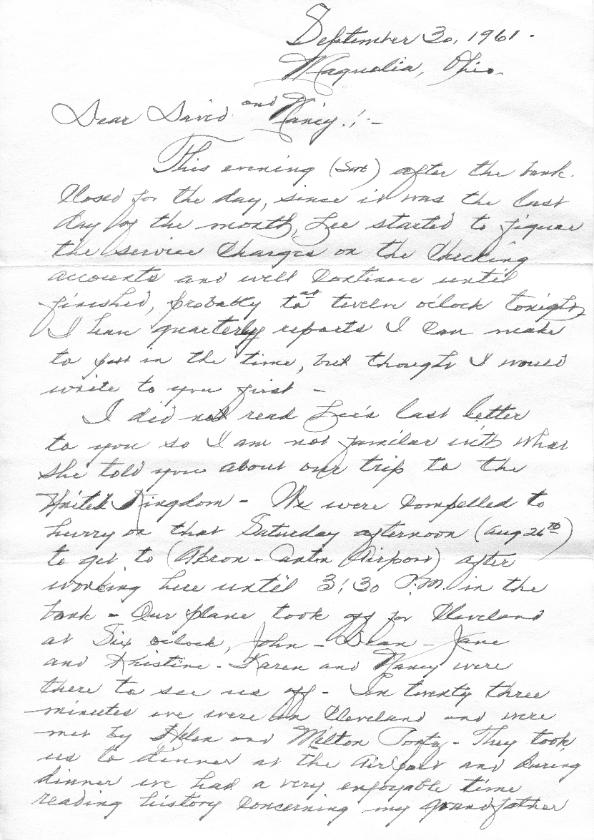 September 30, 1961.
Magnolia, Ohio.
Dear David and Nancy! -
This evening (Sat) after the bank
closed for the day, since it was the last
day of the month, Lee started to figure
the service charges on the checking
accounts and will continue until
finished, probably to at twelve oclock tonight,
I have quarterly reports I can make
to put in the time, but thought I would
write to you first -
I did not read Lee's last letter
to you so I am not familiar with what
she told you about our trip to the
United Kingdom - We were compelled to
hurry on that Saturday afternoon (Aug 26th)
to get to (Akron - Canton Airport) after
working here until 3:30 P.M. in the
bank - Our plane took off for Cleveland
at Six oclock, John - Dean - Jane
and Kristine - Karen and Nancy were
there to see us off - In twenty three
minutes we were in Cleveland and were
met by Helen and Milton - They took
us to dinner at the Airport and during
dinner we had a very enjoyable time
reading history concerning my grandfather